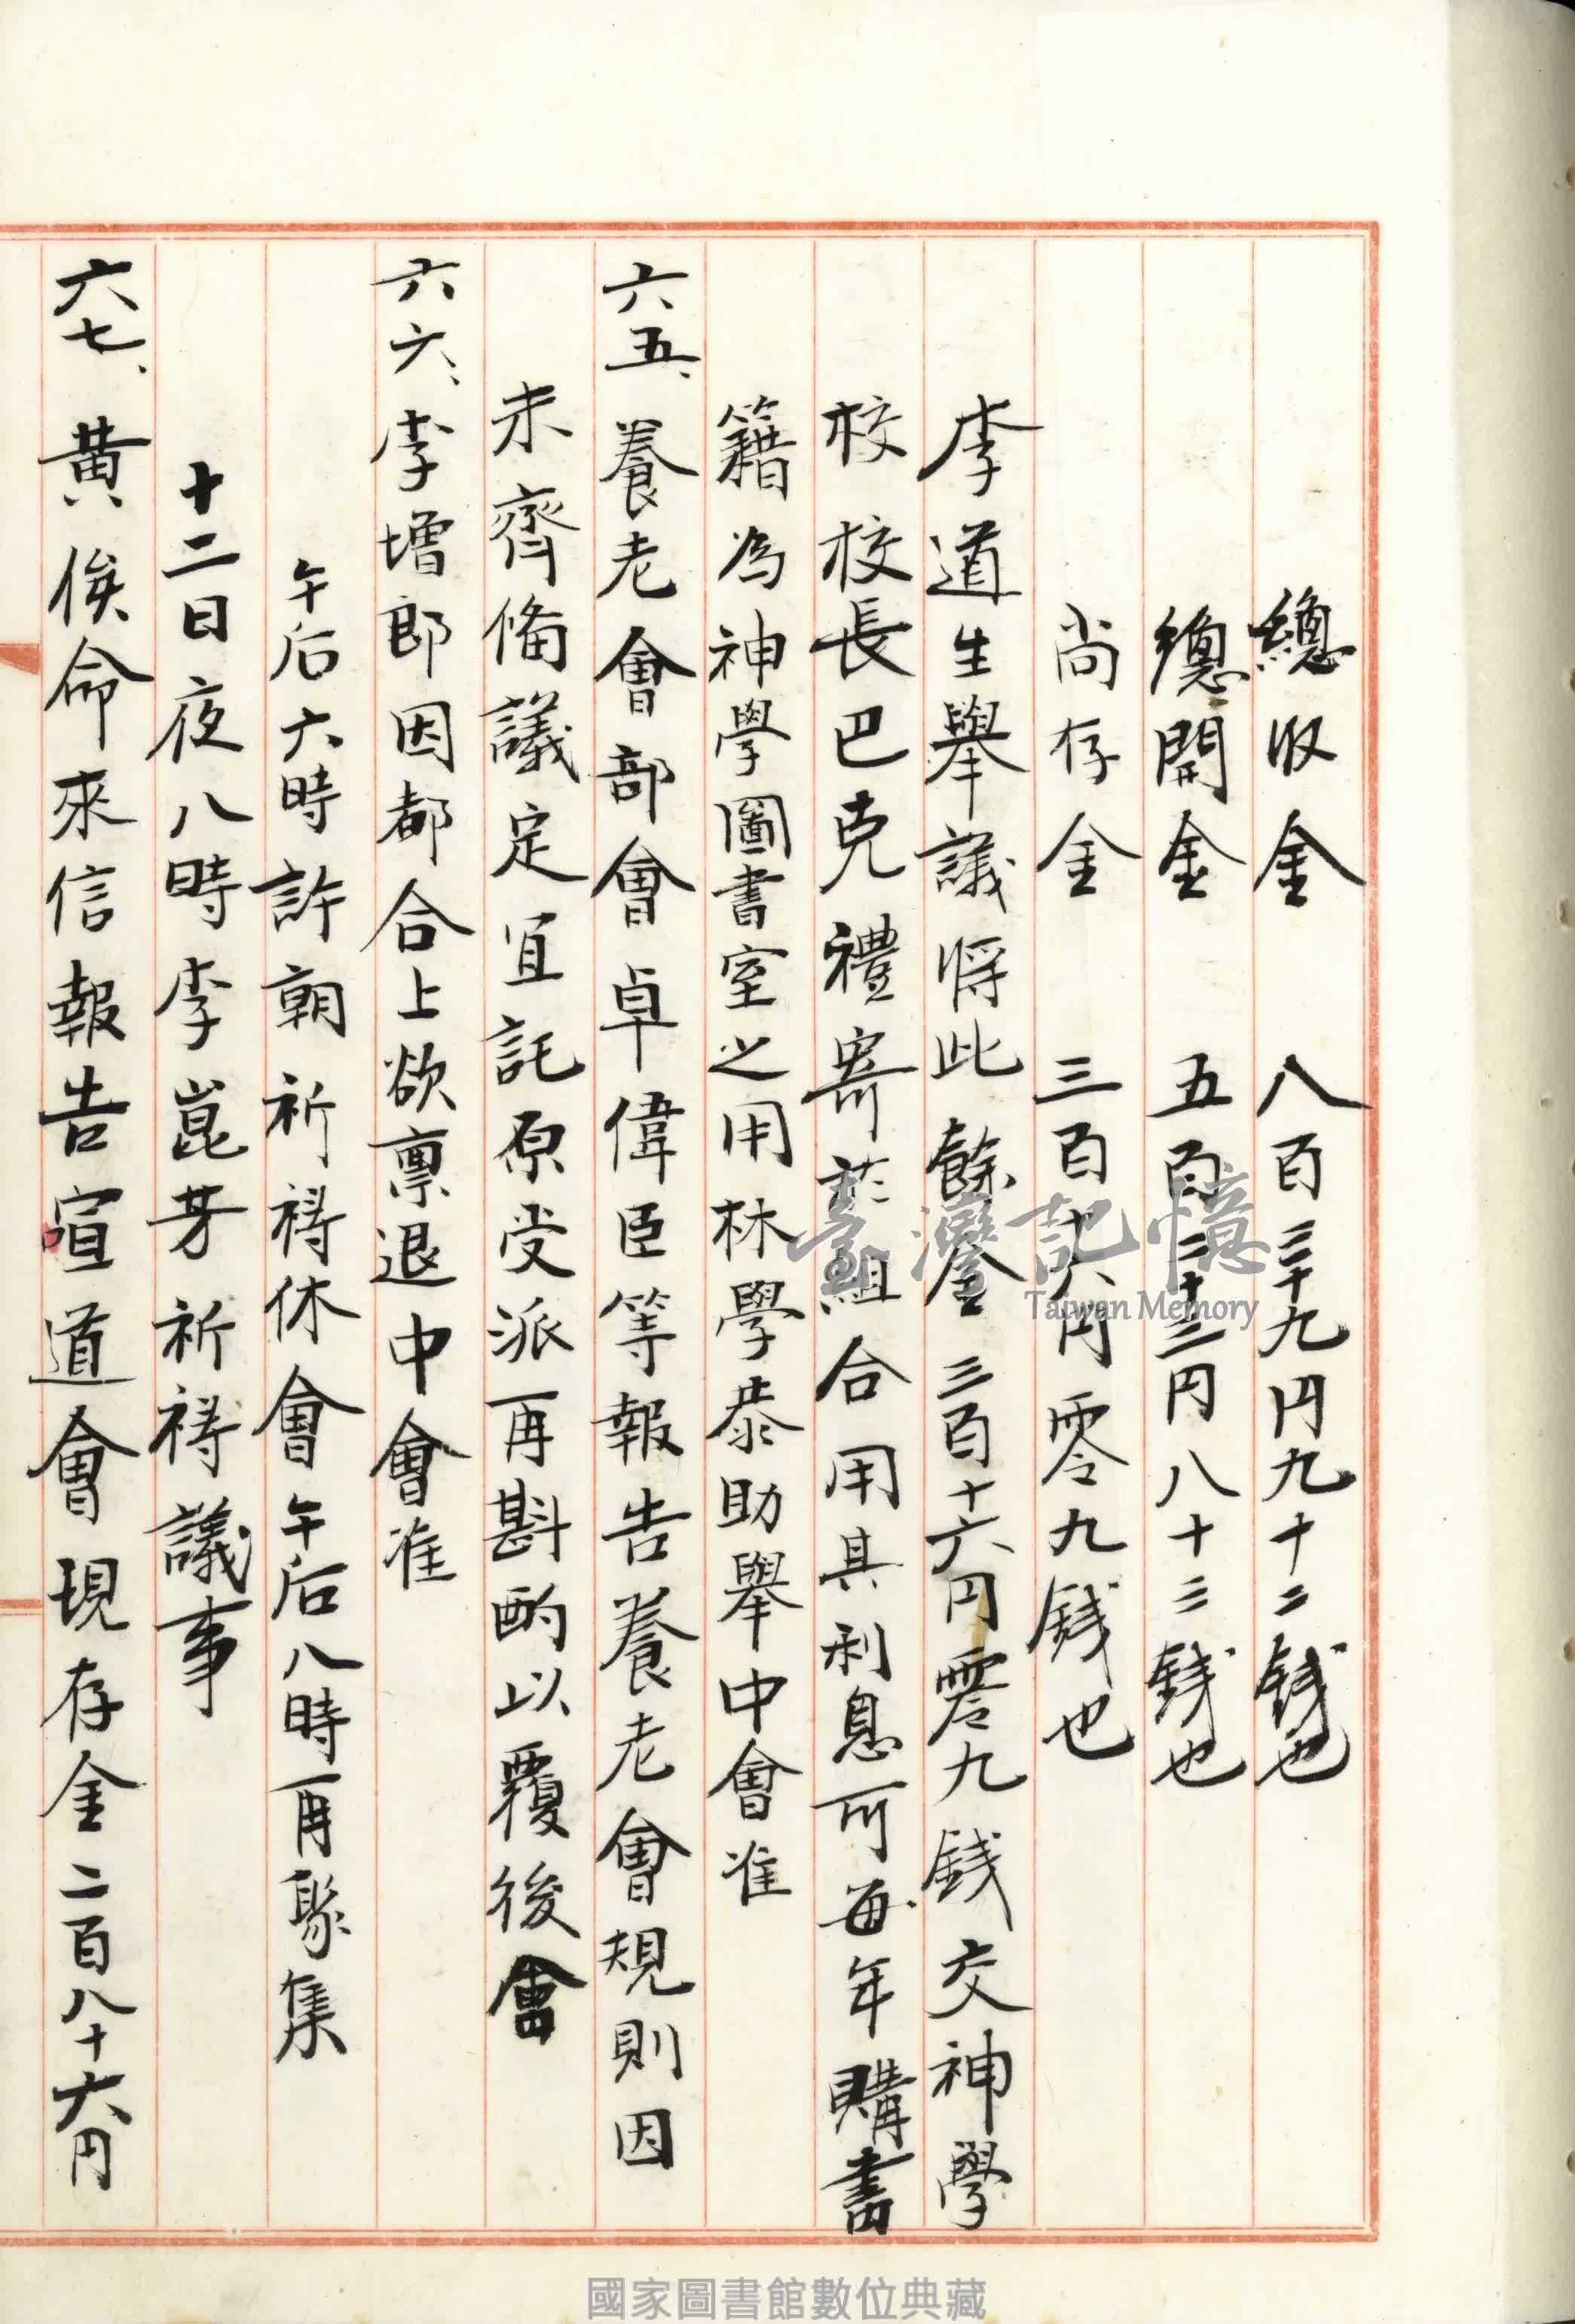 總収金　八百三十九円九十二銭也
總開金　五百二十三円八十三銭也
尚存金　三百十六円零九銭也
李道生舉議將此餘金三百十六円零九銭交神學
校校長巴克禮寄於組合用其利息可每年購書
籍為神學圖書室之用林學恭助舉中會准
六五、養老會部會卓偉臣等報告養老會規則因
未齊備議定宜託原受派再斟酌以覆後會
六六、李增郎因都合上欲禀退中會准
午后六時許朝祈禱休會午后八時再聚集
十二日夜八時李崑芳祈禱議事
六七、黃俟命來信報告宣道會現存金二百八十六円
臺灣記憶
Taiwan Memory
國家圖書館數位典藏